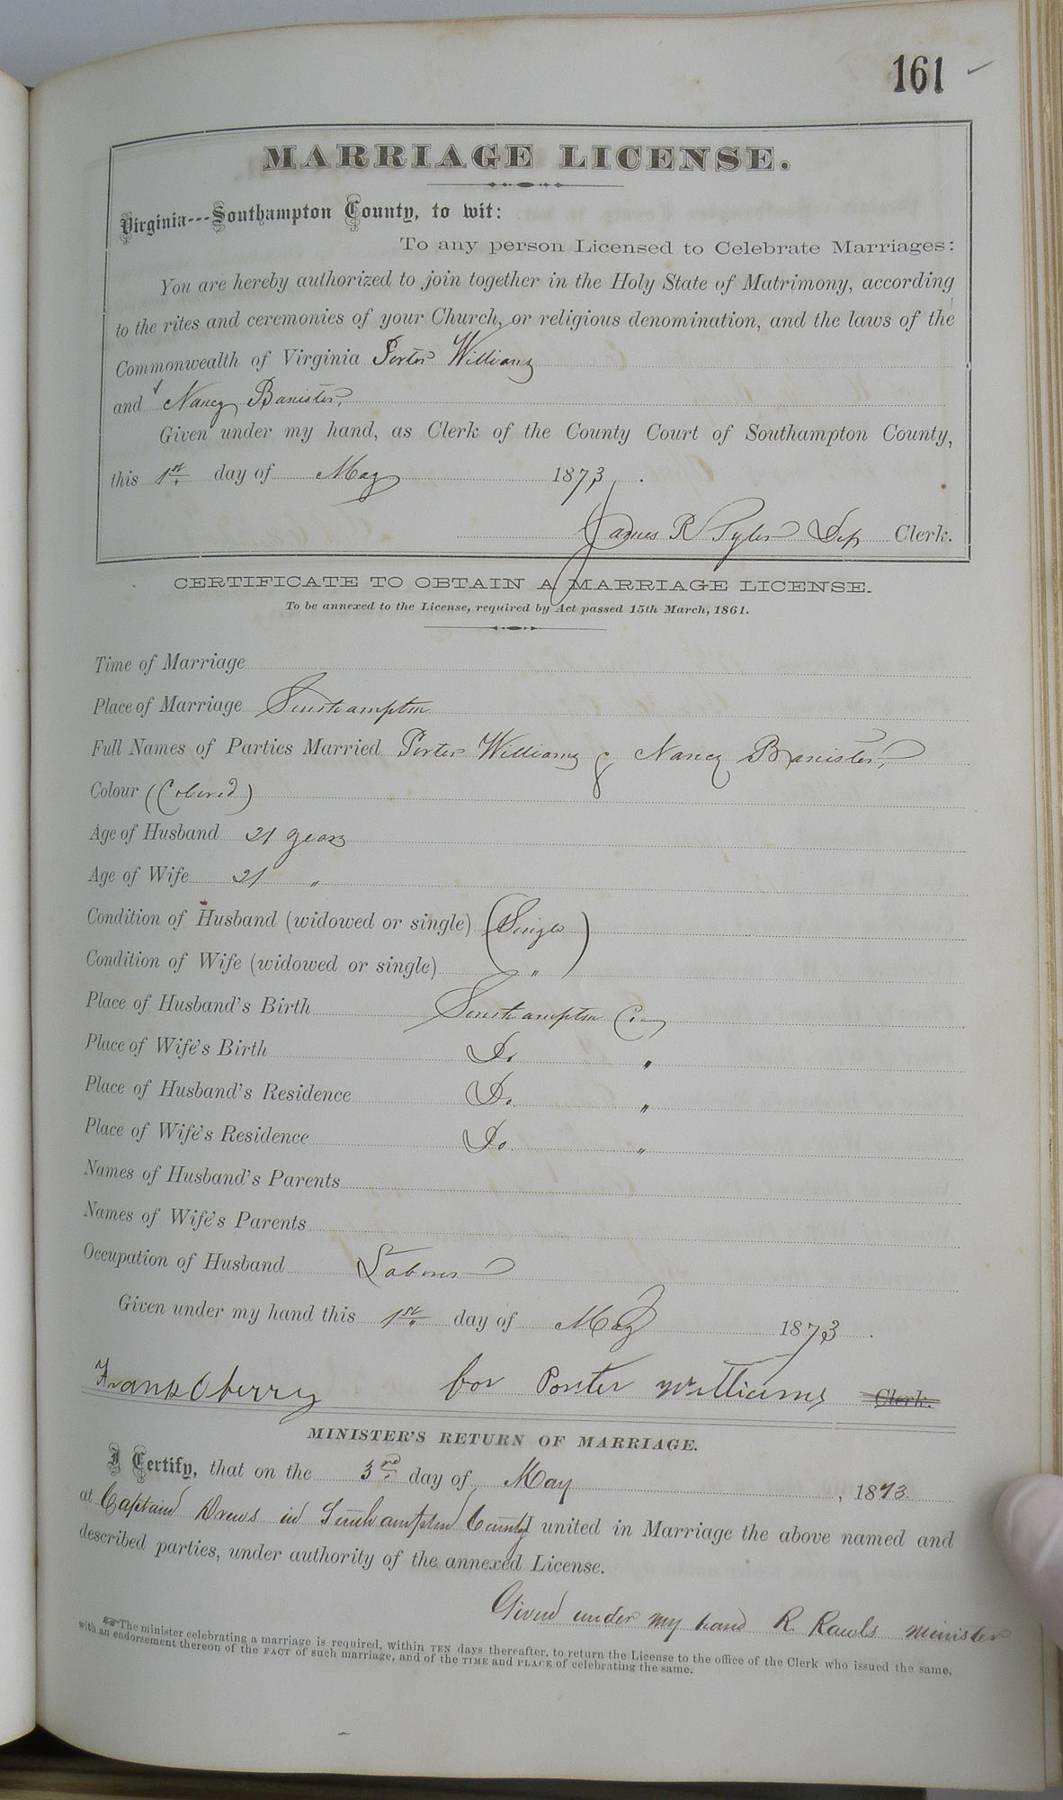 161
MARRIAGE LICENSE.
Virginia---Southampton County, to wit:
To any person Licensed to Celebrate Marriages:
You are hereby authorized to join together in the Holy State of Matrimony, according
to the rites and ceremonies of your Church, or religious denomination, and the laws of the
Commonwealth of Virginia Porter Williams
and Nancy Banister,
Given under my hand, as Clerk of the County Court of Southampton County,
this 1st day of May 1873.
James R Tyler Dep Clerk.
CERTIFICATE TO OBTAIN A MARRIAGE LICENSE.
To be annexed to the License, required by Act passed 15th March, 1861.
Time of Marriage
Place of Marriage Southampton
Full Names of Parties Married Porter Williams & Nancy Banister,
Colour (Colored)
Age of Husband 21 years
Age of Wife 21 "
Condition of Husband (widowed or single) (Single)
Condition of Wife (widowed or single) "
Place of Husband's Birth Southampton Co
Place of Wife's Birth Do "
Place of Husband's Residence Do. "
Place of Wife's Residence Do. "
Names of Husband's Parents
Names of Wife's Parents
Occupation of Husband Laborer
Given under my hand this 1st day of May 1873.
Frank Oberry for Porter Williams Clerk.
MINISTER'S RETURN OF MARRIAGE.
I Certify, that on the 3rd day of May, 1873.
at Captain Drews in Southampton County I united in Marriage the above named and
described parties, under authority of the annexed License.
Given under my hand R. Rawls minister
The minister celebrating a marriage is required, within TEN days thereafter, to return the License to the office of the Clerk who issued the same,
with an endorsement thereon of the FACT of such marriage, and of the TIME and PLACE of celebrating the same.